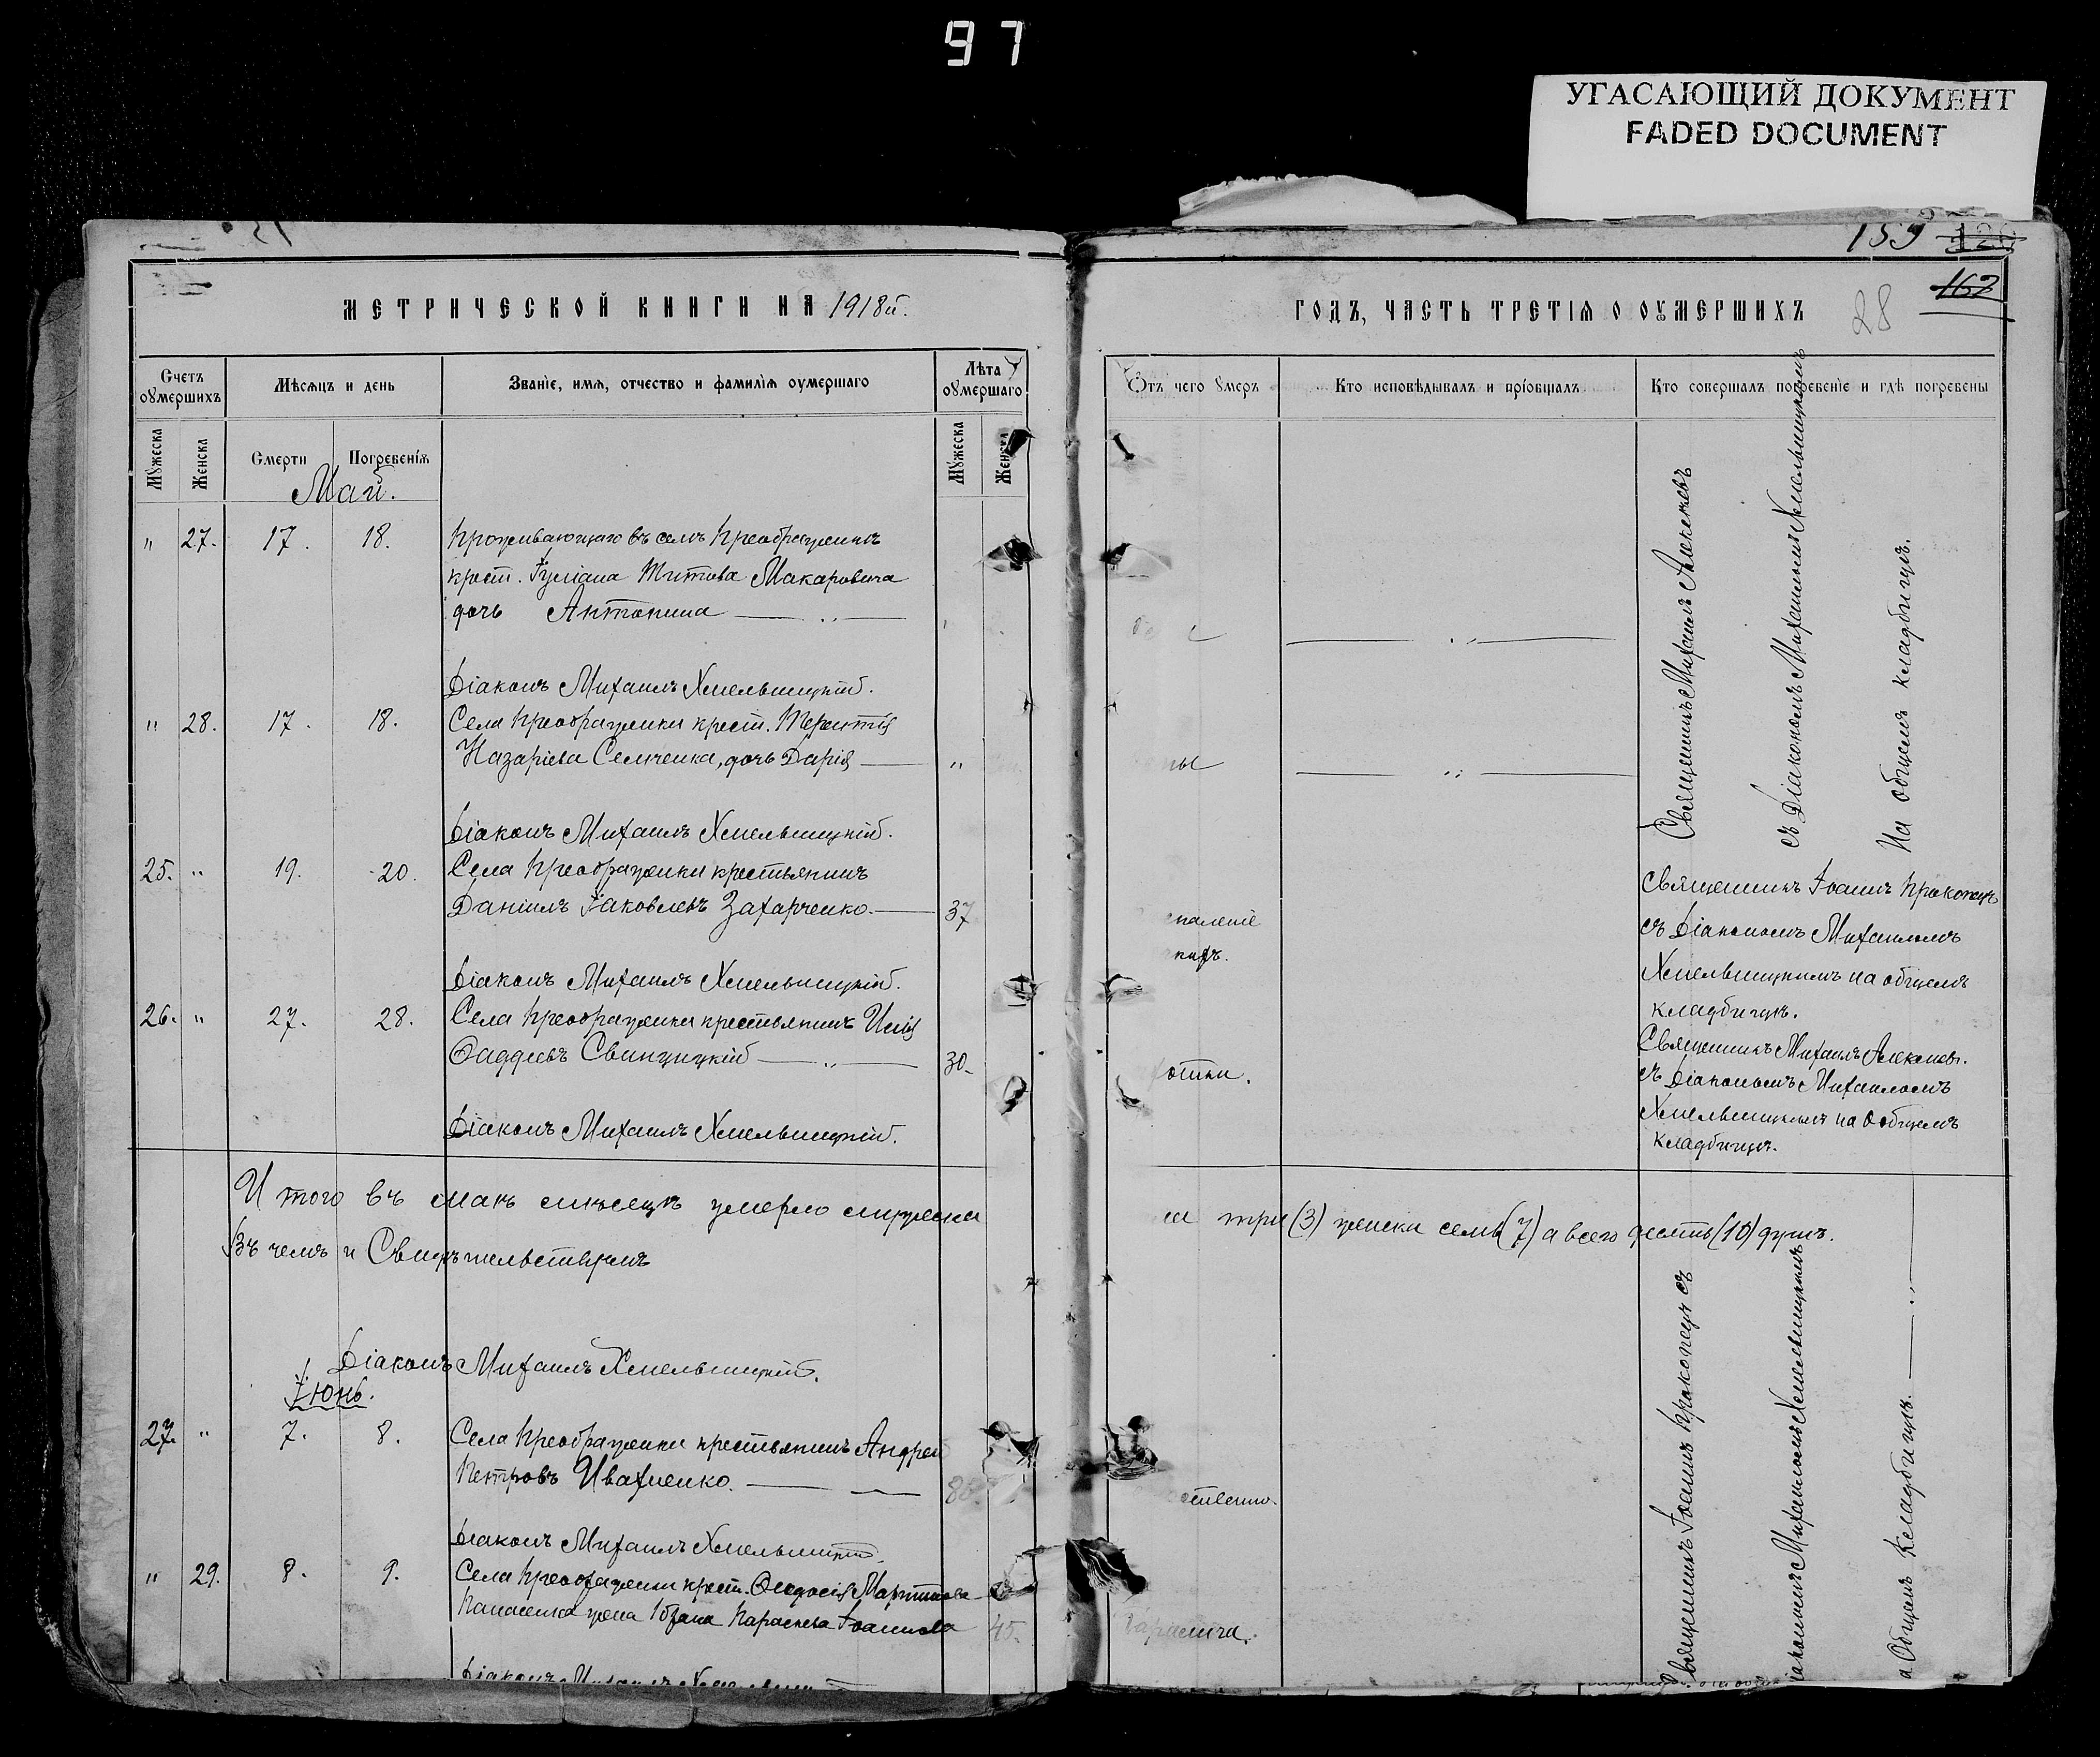 97
УГАСАЮЩИЙ ДОКУМЕНТ
FADED DOCUMENT
159 126
162
28
МЕТРИЧЕСКОЙ КНИГИ НА 1918й.
Счетъ оумершихъ
Мѣсяцъ и день
Званіе, имя, отчество и фамилія оумершаго
Лѣта оумершаго
Мужеска
Женска
Смерти
Погребенія
Мужеска
Женска
Май.
" 27. 17. 18. Проживающаго въ селѣ Преображенкѣ
крест. Іуліана Титова Макаровича
дочь Антонина
Діаконъ Михаилъ Хмельницкій.
" 28. 17. 18. Села Преображенки крест. Терентія
Назаріева Семченка, дочь Дарія "
Діаконъ Михаилъ Хмельницкій.
25. " 19. 20. Села Преображенки крестьянинъ
Даніилъ Іаковлевъ Захарченко. 37
Діаконъ Михаилъ Хмельницкій.
26. " 27. 28. Села Преображенки крестьянинъ Илія
Фаддеевъ Свинцицкій 30.
Діаконъ Михаилъ Хмельницкій.
И того въ маѣ мѣсяцѣ умерло мужеска
Въ чемъ и Свидѣтельствуемъ
Діаконъ Михаилъ Хмельницкій.
Іюнь.
27. " 7. 8. Села Преображенки крестьянинъ Андрей
Петровъ Ивахненко.
Діаконъ Михаилъ Хмельницкій.
" 29. 8. 9. Села Преображенки крест. Феодосія Мартинова
Панасенка жена Параскева Іоаннова 45.
Діаконъ Михаилъ
ГОДЪ, ЧАСТЬ ТРЕТІЯ О ОУМЕРШИХЪ
Отъ чего умеръ
Кто исповѣдывалъ и пріобщалъ
Кто совершалъ погребеніе и гдѣ погребены
Священникъ Михаилъ Алексеевъ
съ Діакономъ Михаиломъ Хмельницкимъ
На общемъ кладбищѣ.
паленіе
Священникъ Іоаннъ Прокопецъ
съ Діакономъ Михаиломъ
Хмельницкимъ на общемъ
кладбищѣ.
отки.
Священникъ Михаилъ Алексеев.
съ Діакономъ Михаиломъ
Хмельницкимъ на Общемъ
кладбищѣ.
три (3) женска семь (7) а всего десять (10) душъ.
ственно.
Священникъ Іоаннъ Прокопецъ съ
іакономъ Михаиломъ Хмельницкимъ
а Общемъ Кладбищѣ.